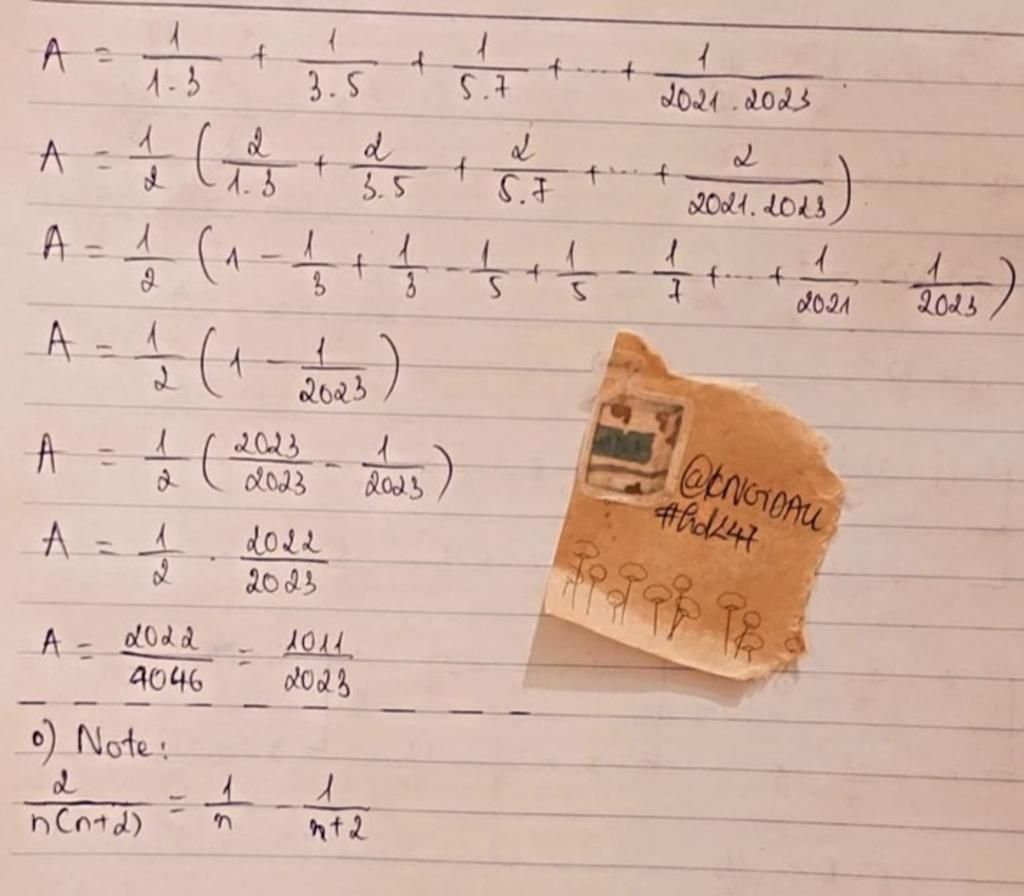 A = 1/1.3 + 1/3.5 + 1/5.7 + ... + 1/2021.2023
A = 1/2 (2/1.3 + 2/3.5 + 2/5.7 + ... + 2/2021.2023)
A = 1/2 (1 - 1/3 + 1/3 - 1/5 + 1/5 - 1/7 + ... + 1/2021 - 1/2023)
A = 1/2 (1 - 1/2023)
A = 1/2 (2023/2023 - 1/2023)
A = 1/2 . 2022/2023
A = 2022/4046 = 1011/2023
o) Note:
2/n(n+2) = 1/n - 1/n+2
#hdk47